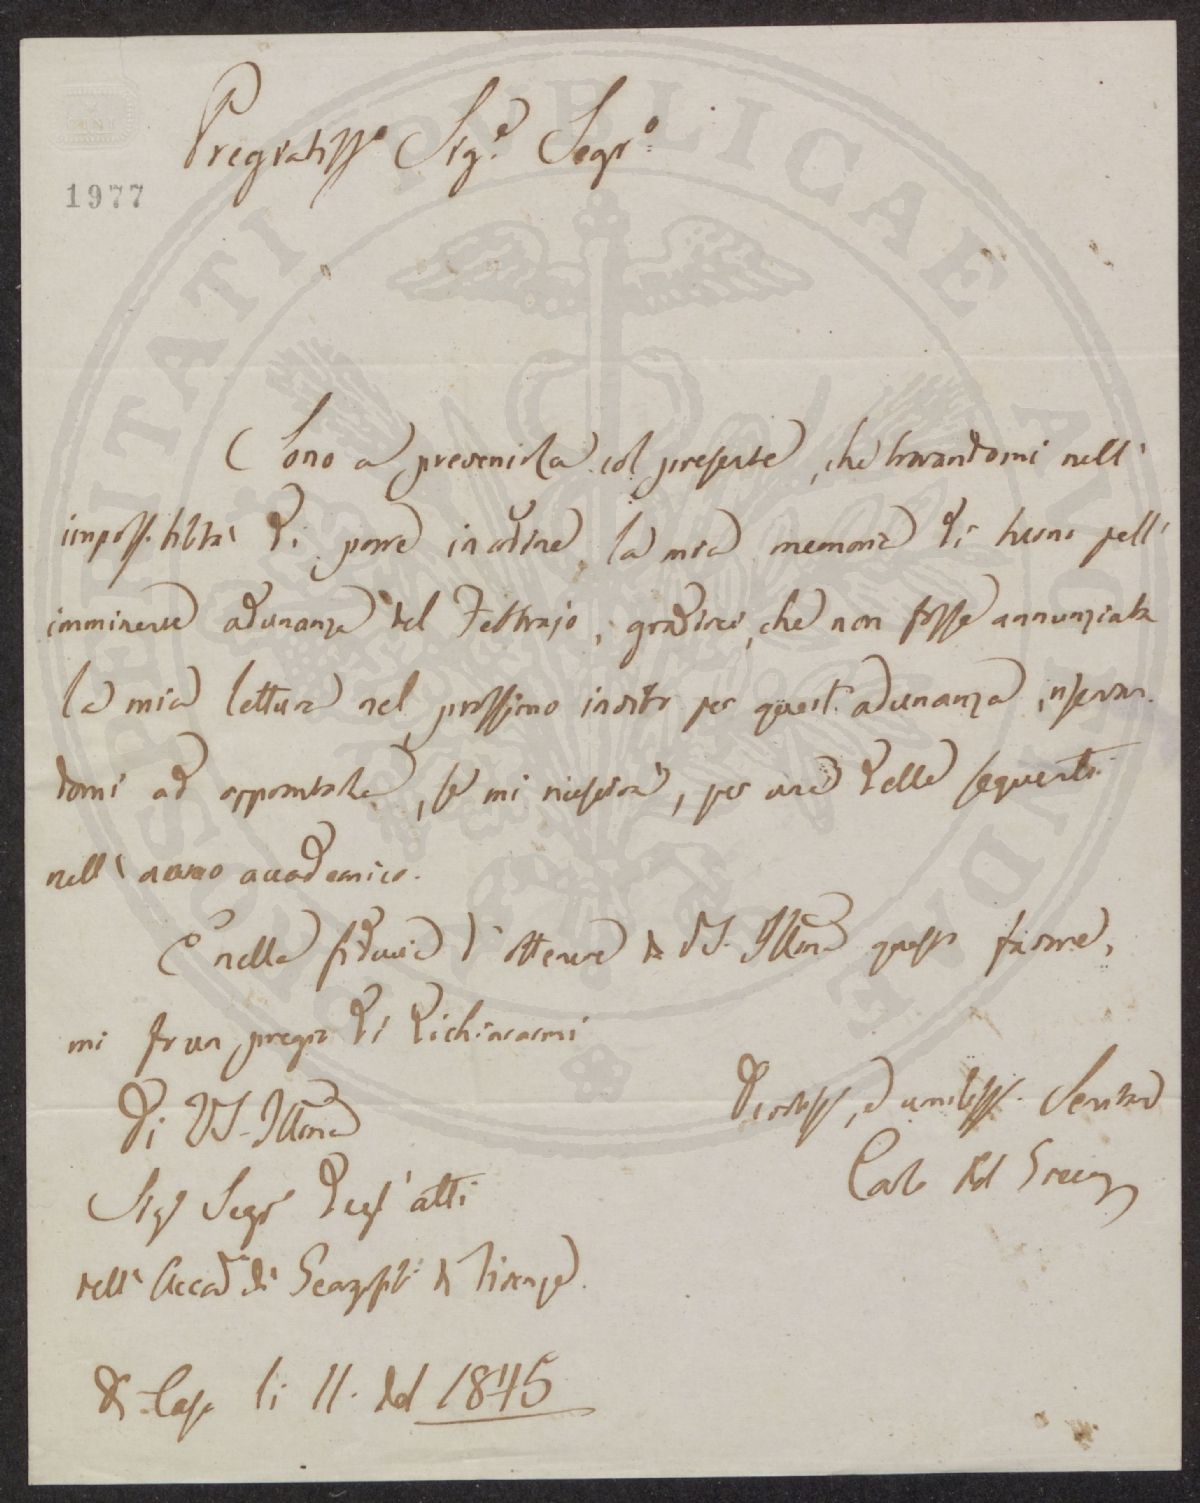 Pregiatiss.º Sig.e Segr.º
1977
Sono a prevenirla col presente, che trovandomi nell'
impossibiltà di porre in ordine la mia memoria di turno pell'
imminente adunanza del Febbrajo, gradirei, che non fosse annunziata
la mia lettura nel prossimo invito per quest'adunanza, riservan-
domi ad approntarla, se mi riuscirà, per una delle seguenti
nell'anno accademico.
E nella fiducia d'ottenere da VS. Illma questo favore,
mi fo un pregio di dichiararmi
Di VS. Illma
Devotiss, ed umiliss. Servitore
Carlo Del Greco
Sigr Segr degl'atti
dell'Accad di Georgofili di Firenze.
Di Casa li 11. del 1845